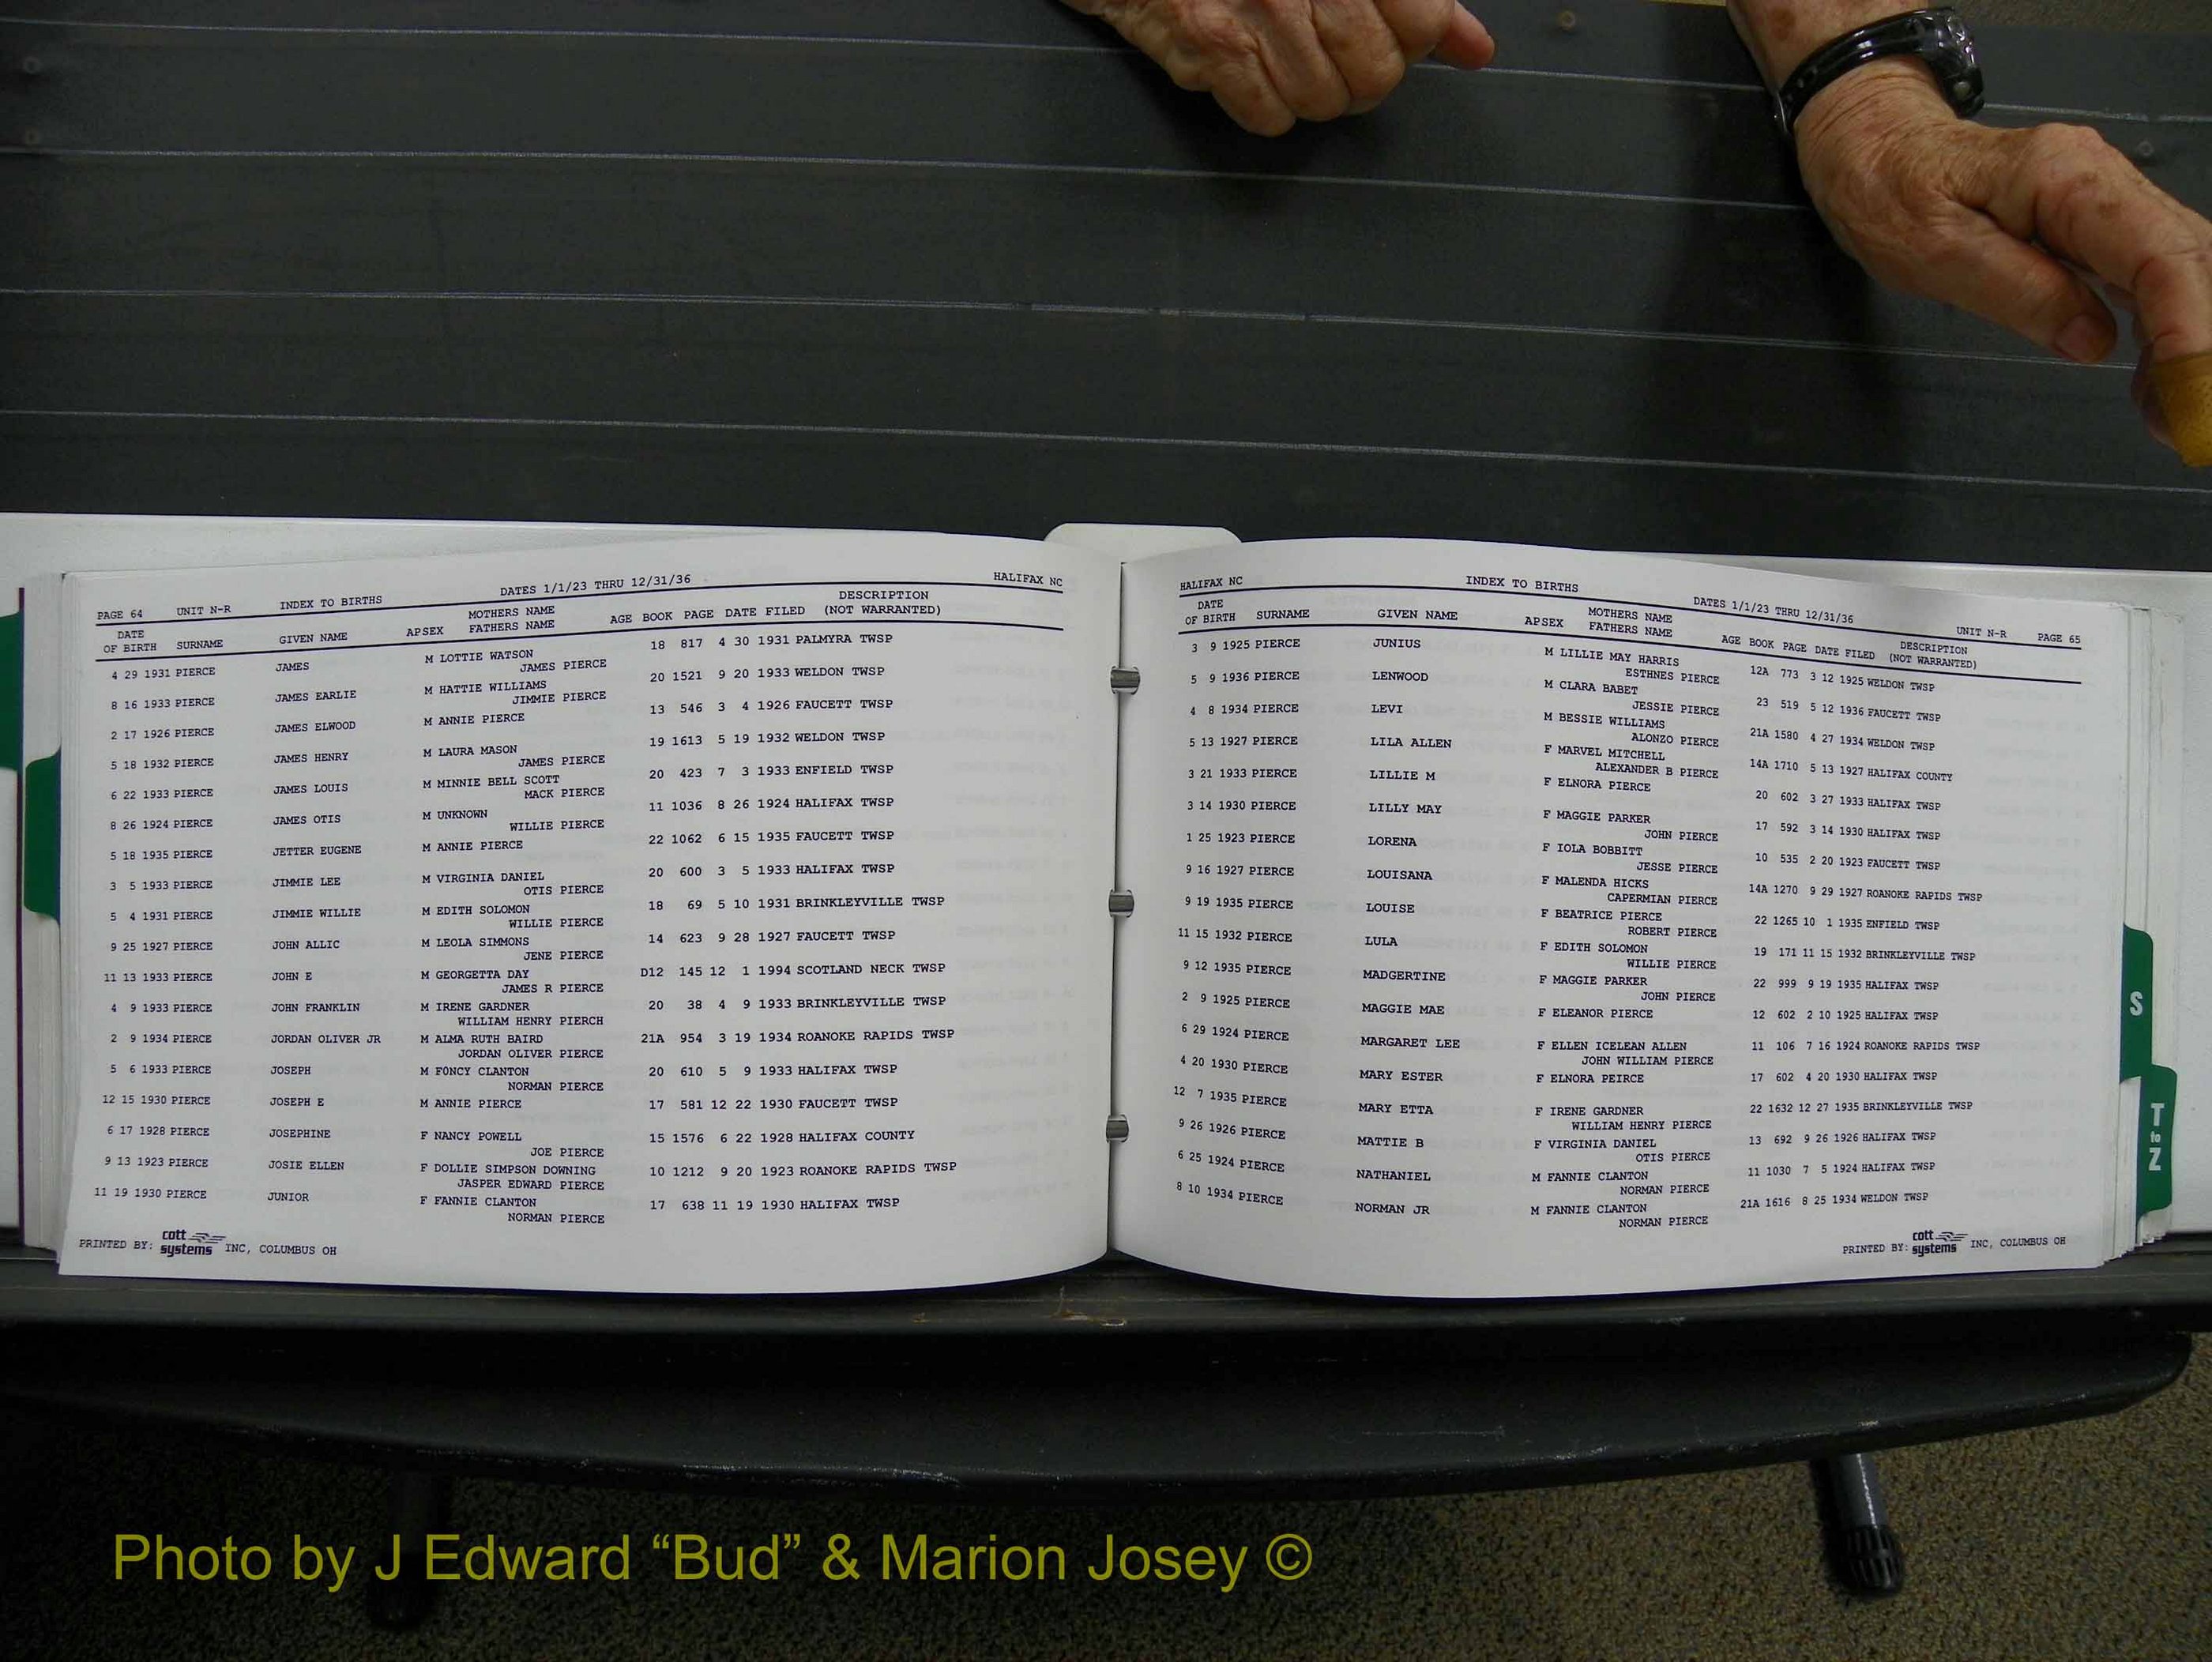 PAGE 64 UNIT N-R INDEX TO BIRTHS DATES 1/1/23 THRU 12/31/36 HALIFAX NC
DATE OF BIRTH SURNAME GIVEN NAME AP SEX MOTHERS NAME FATHERS NAME AGE BOOK PAGE DATE FILED DESCRIPTION (NOT WARRANTED)
4 29 1931 PIERCE JAMES M LOTTIE WATSON 18 817 4 30 1931 PALMYRA TWSP
JAMES PIERCE
8 16 1933 PIERCE JAMES EARLIE M HATTIE WILLIAMS 20 1521 9 20 1933 WELDON TWSP
JIMMIE PIERCE
2 17 1926 PIERCE JAMES ELWOOD M ANNIE PIERCE 13 546 3 4 1926 FAUCETT TWSP
5 18 1932 PIERCE JAMES HENRY M LAURA MASON 19 1613 5 19 1932 WELDON TWSP
JAMES PIERCE
6 22 1933 PIERCE JAMES LOUIS M MINNIE BELL SCOTT 20 423 7 3 1933 ENFIELD TWSP
MACK PIERCE
8 26 1924 PIERCE JAMES OTIS M UNKNOWN 11 1036 8 26 1924 HALIFAX TWSP
WILLIE PIERCE
5 18 1935 PIERCE JETTER EUGENE M ANNIE PIERCE 22 1062 6 15 1935 FAUCETT TWSP
3 5 1933 PIERCE JIMMIE LEE M VIRGINIA DANIEL 20 600 3 5 1933 HALIFAX TWSP
OTIS PIERCE
5 4 1931 PIERCE JIMMIE WILLIE M EDITH SOLOMON 18 69 5 10 1931 BRINKLEYVILLE TWSP
WILLIE PIERCE
9 25 1927 PIERCE JOHN ALLIC M LEOLA SIMMONS 14 623 9 28 1927 FAUCETT TWSP
JENE PIERCE
11 13 1933 PIERCE JOHN E M GEORGETTA DAY D12 145 12 1 1994 SCOTLAND NECK TWSP
JAMES R PIERCE
4 9 1933 PIERCE JOHN FRANKLIN M IRENE GARDNER 20 38 4 9 1933 BRINKLEYVILLE TWSP
WILLIAM HENRY PIERCH
2 9 1934 PIERCE JORDAN OLIVER JR M ALMA RUTH BAIRD 21A 954 3 19 1934 ROANOKE RAPIDS TWSP
JORDAN OLIVER PIERCE
5 6 1933 PIERCE JOSEPH M FONCY CLANTON 20 610 5 9 1933 HALIFAX TWSP
NORMAN PIERCE
12 15 1930 PIERCE JOSEPH E M ANNIE PIERCE 17 581 12 22 1930 FAUCETT TWSP
6 17 1928 PIERCE JOSEPHINE F NANCY POWELL 15 1576 6 22 1928 HALIFAX COUNTY
JOE PIERCE
9 13 1923 PIERCE JOSIE ELLEN F DOLLIE SIMPSON DOWNING 10 1212 9 20 1923 ROANOKE RAPIDS TWSP
JASPER EDWARD PIERCE
11 19 1930 PIERCE JUNIOR F FANNIE CLANTON 17 638 11 19 1930 HALIFAX TWSP
NORMAN PIERCE
PRINTED BY: cott systems INC, COLUMBUS OH
HALIFAX NC INDEX TO BIRTHS DATES 1/1/23 THRU 12/31/36 UNIT N-R PAGE 65
DATE OF BIRTH SURNAME GIVEN NAME AP SEX MOTHERS NAME FATHERS NAME AGE BOOK PAGE DATE FILED DESCRIPTION (NOT WARRANTED)
3 9 1925 PIERCE JUNIUS M LILLIE MAY HARRIS 12A 773 3 12 1925 WELDON TWSP
ESTHNES PIERCE
5 9 1936 PIERCE LENWOOD M CLARA BABET 23 519 5 12 1936 FAUCETT TWSP
JESSIE PIERCE
4 8 1934 PIERCE LEVI M BESSIE WILLIAMS 21A 1580 4 27 1934 WELDON TWSP
ALONZO PIERCE
5 13 1927 PIERCE LILA ALLEN F MARVEL MITCHELL 14A 1710 5 13 1927 HALIFAX COUNTY
ALEXANDER B PIERCE
3 21 1933 PIERCE LILLIE M F ELNORA PIERCE 20 602 3 27 1933 HALIFAX TWSP
3 14 1930 PIERCE LILLY MAY F MAGGIE PARKER 17 592 3 14 1930 HALIFAX TWSP
JOHN PIERCE
1 25 1923 PIERCE LORENA F IOLA BOBBITT 10 535 2 20 1923 FAUCETT TWSP
JESSE PIERCE
9 16 1927 PIERCE LOUISANA F MALENDA HICKS 14A 1270 9 29 1927 ROANOKE RAPIDS TWSP
CAPERMIAN PIERCE
9 19 1935 PIERCE LOUISE F BEATRICE PIERCE 22 1265 10 1 1935 ENFIELD TWSP
ROBERT PIERCE
11 15 1932 PIERCE LULA F EDITH SOLOMON 19 171 11 15 1932 BRINKLEYVILLE TWSP
WILLIE PIERCE
9 12 1935 PIERCE MADGERTINE F MAGGIE PARKER 22 999 9 19 1935 HALIFAX TWSP
JOHN PIERCE
2 9 1925 PIERCE MAGGIE MAE F ELEANOR PIERCE 12 602 2 10 1925 HALIFAX TWSP
6 29 1924 PIERCE MARGARET LEE F ELLEN ICELEAN ALLEN 11 106 7 16 1924 ROANOKE RAPIDS TWSP
JOHN WILLIAM PIERCE
4 20 1930 PIERCE MARY ESTER F ELNORA PEIRCE 17 602 4 20 1930 HALIFAX TWSP
12 7 1935 PIERCE MARY ETTA F IRENE GARDNER 22 1632 12 27 1935 BRINKLEYVILLE TWSP
WILLIAM HENRY PIERCE
9 26 1926 PIERCE MATTIE B F VIRGINIA DANIEL 13 692 9 26 1926 HALIFAX TWSP
OTIS PIERCE
6 25 1924 PIERCE NATHANIEL M FANNIE CLANTON 11 1030 7 5 1924 HALIFAX TWSP
NORMAN PIERCE
8 10 1934 PIERCE NORMAN JR M FANNIE CLANTON 21A 1616 8 25 1934 WELDON TWSP
NORMAN PIERCE
PRINTED BY: cott systems INC, COLUMBUS OH
S
T to Z
Photo by J Edward “Bud” & Marion Josey ©